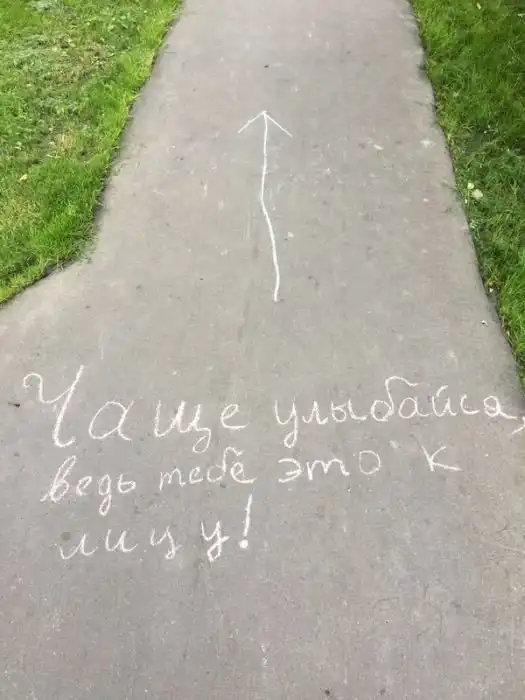 Чаще улыбайся,
ведь тебе это к
лицу!